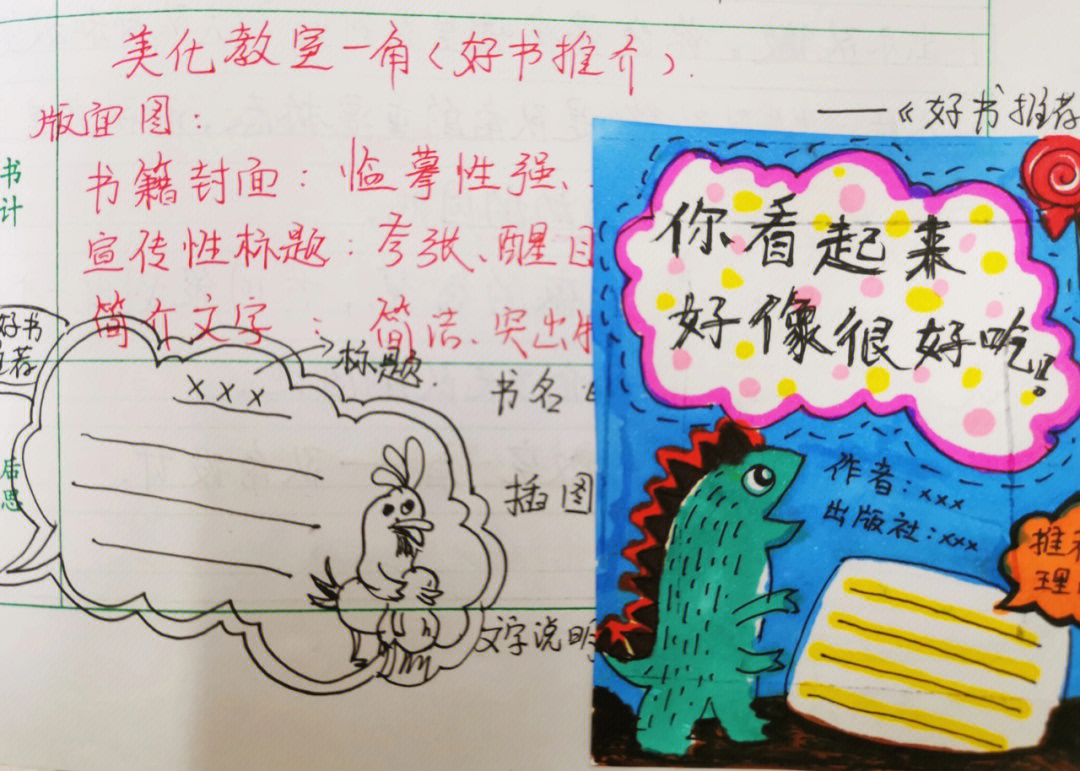 美化教室一角(好书推介).
——《好书推荐
版面图:
书籍封面: 临摹性强、
宣传性标题: 夸张、醒目
简介文字 : 简洁、突出
书
计
好书
荐
后
思
标题.
×××
书名
插图
文字说明
你看起来
好像很好吃!
作者:xxx
出版社:xxx
推
理